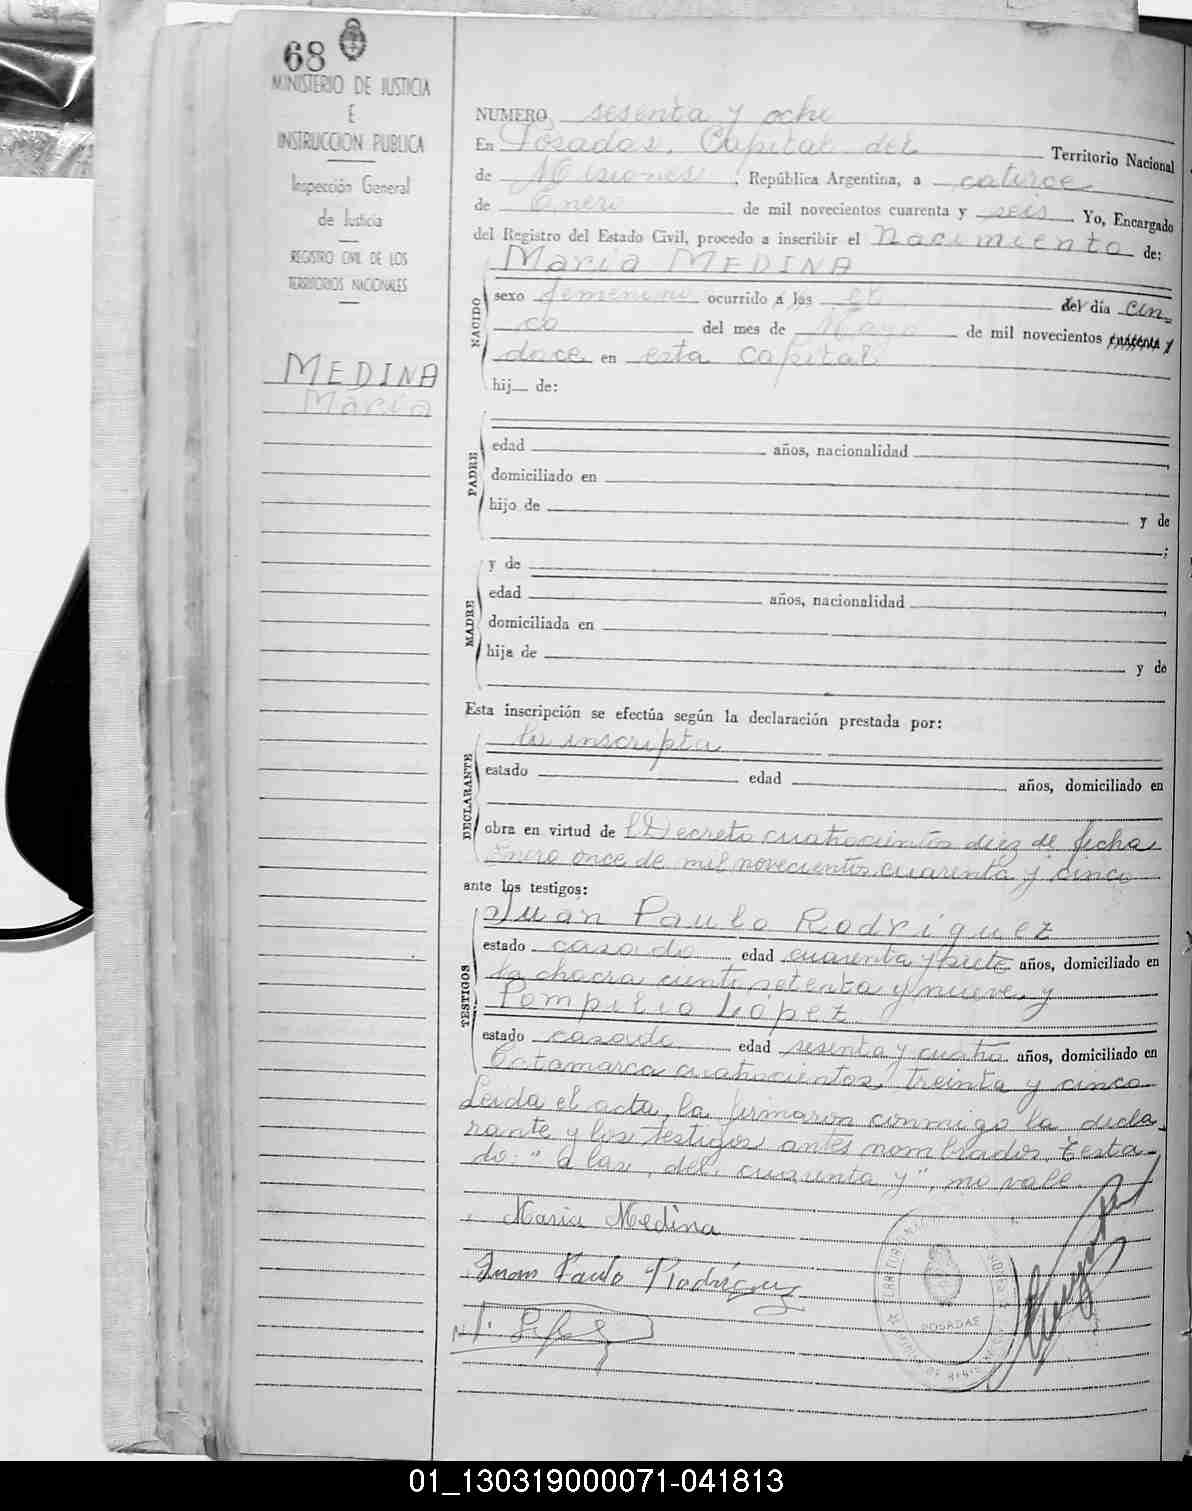 68
MINISTERIO DE JUSTICIA
E
INSTRUCCION PUBLICA
Inspección General
de Justicia
REGISTRO CIVIL DE LOS
TERRITORIOS NACIONALES
MEDINA
Maria
NUMERO sesenta y ocho
En Posadas, Capital del Territorio Nacional
de Misiones, República Argentina, a catorce
de Enero de mil novecientos cuarenta y seis Yo, Encargado
del Registro del Estado Civil, procedo a inscribir el Nacimiento de:
Maria MEDINA
NACIDO
sexo femenino ocurrido a las el del día cin
co del mes de Mayo de mil novecientos cuarenta y
doce en esta capital
hij de:
PADRE
edad años, nacionalidad ,
domiciliado en
hijo de y de
;
MADRE
y de
edad años, nacionalidad ,
domiciliada en
hija de y de
Esta inscripción se efectúa según la declaración prestada por:
DECLARANTE
la inscripta
estado edad años, domiciliado en
obra en virtud de l Decreto cuatrocientos diez de fecha
Enero once de mil novecientos cuarenta y cinco
ante los testigos:
TESTIGOS
Juan Paulo Rodriguez
estado casado edad cuarenta y siete años, domiciliado en
la chacra ciento setenta y nueve, y
Pompilio López
estado casado edad sesenta y cuatro años, domiciliado en
Catamarca cuatrocientos treinta y cinco
Leida el acta, la firmaron conmigo la decla
rante y los testigos antes nombrados. Testa-
do: "a las, del, cuarenta y", no vale.
Maria Medina
Juan Paulo Rodríguez
POSADAS
01_130319000071-041813